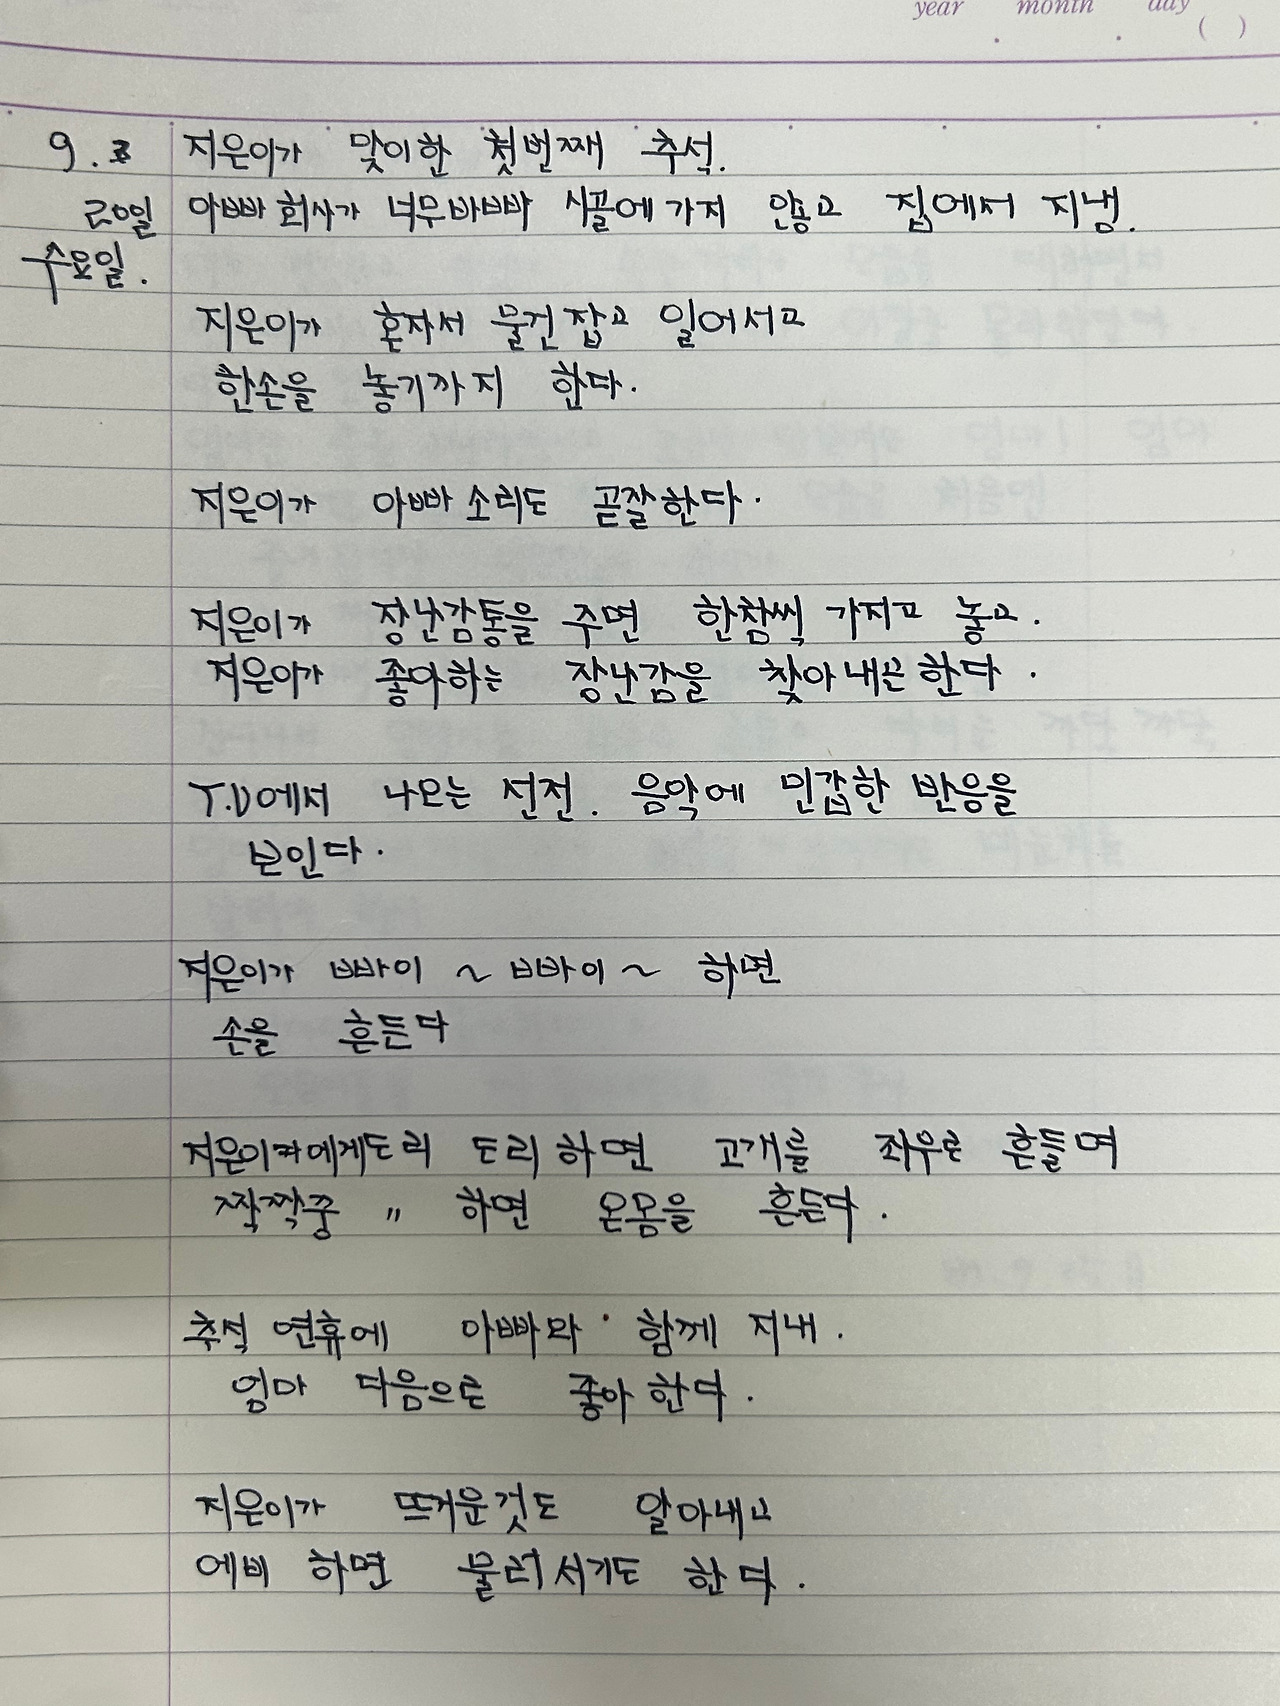 year month day
( )
9. 지은이가 맞이한 첫번째 추석.
20일 아빠 회사가 너무바빠 시골에 가지 않고 집에서 지냄.
수요일.
지은이가 혼자서 물건 잡고 일어서고
한손을 놓기까지 한다.
지은이가 아빠 소리도 곧잘한다.
지은이가 장난감통을 주면 한참씩 가지고 놀고.
지은이가 좋아하는 장난감을 찾아내곤 한다.
T.V에서 나오는 선전. 음악에 민감한 반응을
보인다.
지은이가 빠이 ~ 빠이 ~ 하면
손을 흔든다
지은이에게 도리 도리 하면 고개를 좌우로 흔들며
짝짝쿵 〃 하면 온몸을 흔든다.
추석 연휴에 아빠와 함께 지내.
엄마 다음으로 좋아 한다.
지은이가 뜨거운것도 알아내고
에비 하면 물러서기도 한다.